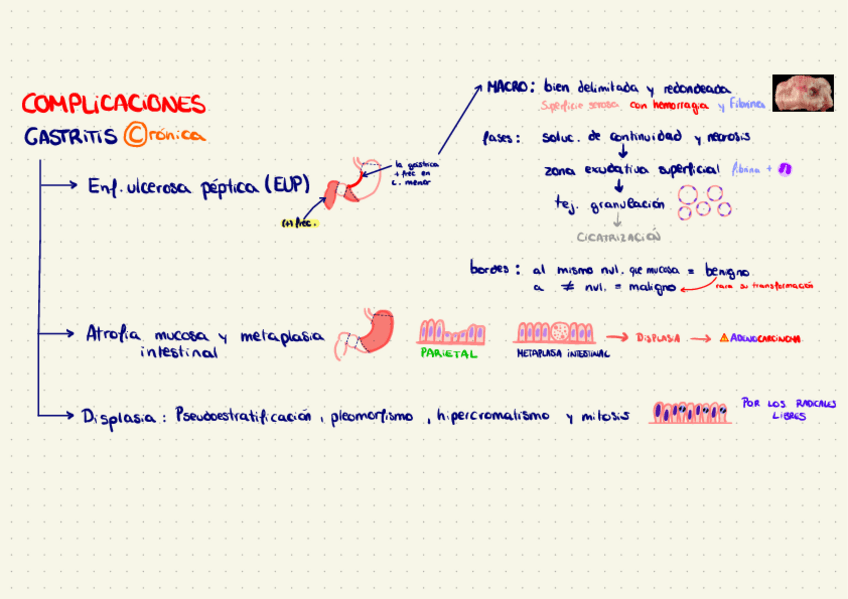 COMPLICACIONES
GASTRITIS Crónica
Enf. ulcerosa péptica (EUP)
la gástrica
+ frec en
c. menor
(+) frec.
MACRO: bien delimitada y redondeada
Superficie serosa con hemorragia y Fibrina
fases: soluc. de continuidad y necrosis
zona exudativa superficial fibrina +
tej. granulación
CICATRIZACIÓN
bordes: al mismo nivl. que mucosa = benigno
a ≠ nvl. = maligno rara su transformación
Atrofia mucosa y metaplasia
intestinal
PARIETAL
METAPLASIA INTESTINAL
DISPLASIA
ADENOCARCINOMA
Displasia: Pseudoestratificación, pleomorfismo, hipercromatismo y mitosis
POR LOS RADICALES
LIBRES